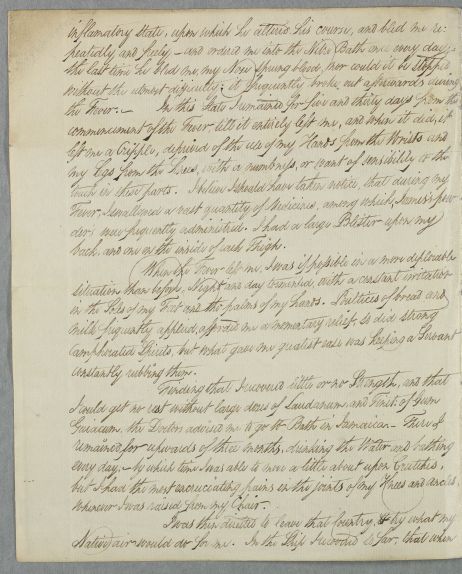 inflamatory state, upon which he altered his course, and bled me re-
peatedly and freely, – and ordered me into the Nitre Bath once every day;
the last time he bled me, my Nose sprung blood, nor could it be stopped
without the utmost difficulty; it frequently broke out afterwards during
the Fever. – In this State I remained for five and thirty days from the
commencement of the Fever, till it entirely left me, and when it did, it
left me a Cripple, deprived of the use of my Hands from the Wrists and
my Legs from the Knees, with a numbness, or want of sensibility to the
touch in their parts. I should have taken notice, that during my
Fever, I swallowed a vast quantity of Medicines, among which, James's pow-
ders were frequently administred. I had a large Blister upon my
back, and one on the inside of each thigh.
When the Fever left me, I was if possible in a more deplorable
situation than before, Night and day tormented, with a constant irritation
in the Soles of my Feet and the palms of my hands. Poultices of bread and
milk frequently applied, afforded me a momentary relief, so did strong
Camphorated Spirits, but what gave me greatest ease was keeping a Servant
constantly rubbing them.
Finding that I recovered little or no Strength, and that
I could get no rest without large doses of Laudanum, and Tinct: of Gum
Guiacum, the Doctors advised me to go to Bath in Jamaica – There I
remained for upwards of three months, drinking the Water and bathing
every day; – by which time I was able to move a little about upon Crutches,
but I had the most excruciating pains in the joints of my Knees and ancles,
whenever I was raised from my Chair.
I was then directed to leave that Country, & try what my
Native air would do for me. In the Ship I recovered so far, that when